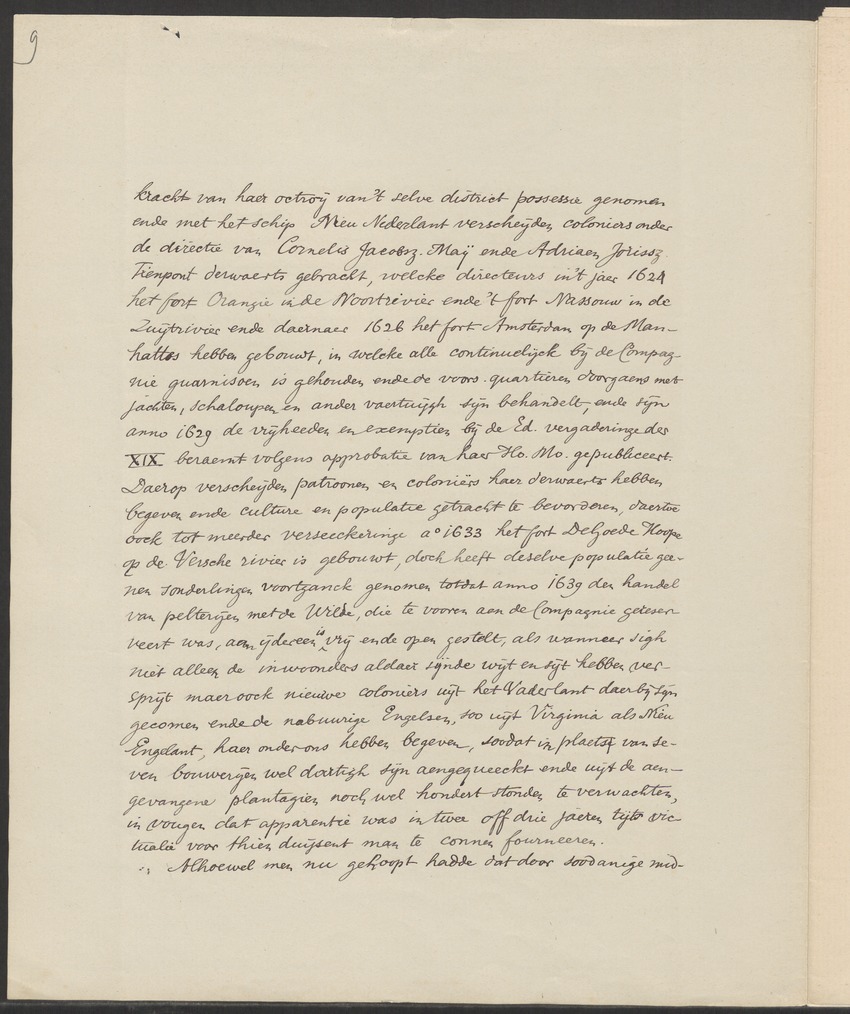 9
kracht van haer octroij van 't selve district possessie genomen
ende met het schip Nieu Nederlant verscheijden coloniers onder
de directie van Cornelis Jacobsz. Maij ende Adriaen Jorissz.
Tienpont derwaerts gebracht, welcke directeurs in 't jaer 1624
het fort Orangie in de Noortrivier ende 't fort Nassouw in de
Zuijtrivier ende daernaer 1626 het fort Amsterdam op de Man-
hattos hebben gebouwt, in welcke alle continuelijck bij de Compag-
nie guarnisoen is gehouden ende de voors. quartieren doorgaens met
jachten, schaloupen en ander vaertuijgh sijn behandelt, ende sijn
anno 1629 de vrijheeden en exemptien bij de Ed. vergaderinge der
XIX beraemt volgens approbatie van haer Ho. Mo. gepubliceert.
Daerop verscheijden patroonen en coloniërs haer derwaerts hebben
begeven ende culture en populatie getracht te bevorderen, daertoe
oock tot meerder verseeckeringe a° 1633 het fort De Goede Hoope
op de Versche rivier is gebouwt, doch heeft deselve populatie gee-
nen sonderlingen voortganck genomen totdat anno 1639 den handel
van pelterijen met de Wilde, die te vooren aen de Compagnie gereser-
veert was, aen ijdereen is vrij ende open gestelt, als wanneer sigh
niet alleen de inwoonders aldaer sijnde wijt en sijt hebben ver-
sprijt maer oock nieuwe coloniers uijt het Vaderlant daer bij sijn
gecomen ende de nabuurige Engelsen, soo uijt Virginia als Nieu
Engelant, haer onder ons hebben begeven, soodat in plaets van se-
ven bouwerijen wel dartigh sijn aengequeeckt ende uijt de aen-
gevangene plantagien noch wel hondert stonden te verwachten,
in vougen dat apparentie was in twee off drie jaeren tijts vic
tualie voor thien duijsent man te connen fourneeren.
Alhoewel men nu gehoopt hadde dat door soodanige mid-